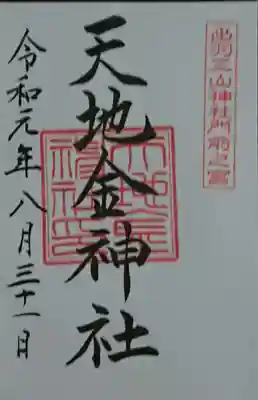 出羽三山神社門前之宮
天地金神社
令和元年八月三十一日